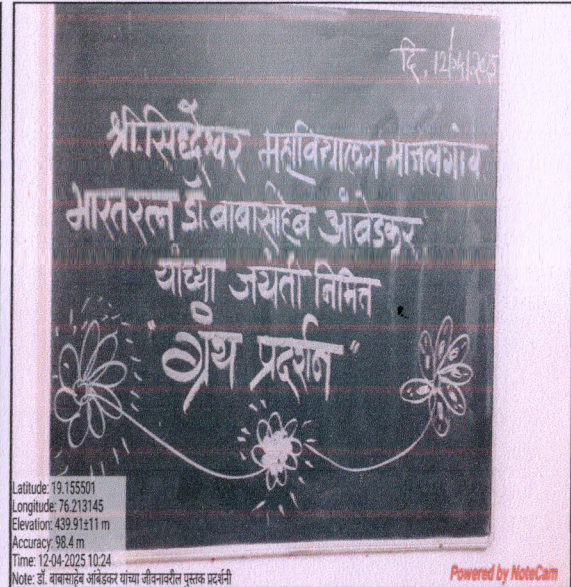 दि. 12/04/2025
श्री. सिद्धेश्वर महाविद्यालय माजलगांव
भारतरत्न डॉ. बाबासाहेब आंबेडकर
यांच्या जयंती निमित्त
"ग्रंथ प्रदर्शन"
Latitude: 19.155501
Longitude: 76.213145
Elevation: 439.91±11 m
Accuracy: 98.4 m
Time: 12-04-2025 10:24
Note: डॉ. बाबासाहेब आंबेडकर यांच्या जीवनावरील पुस्तक प्रदर्शनी
Powered by NoteCam